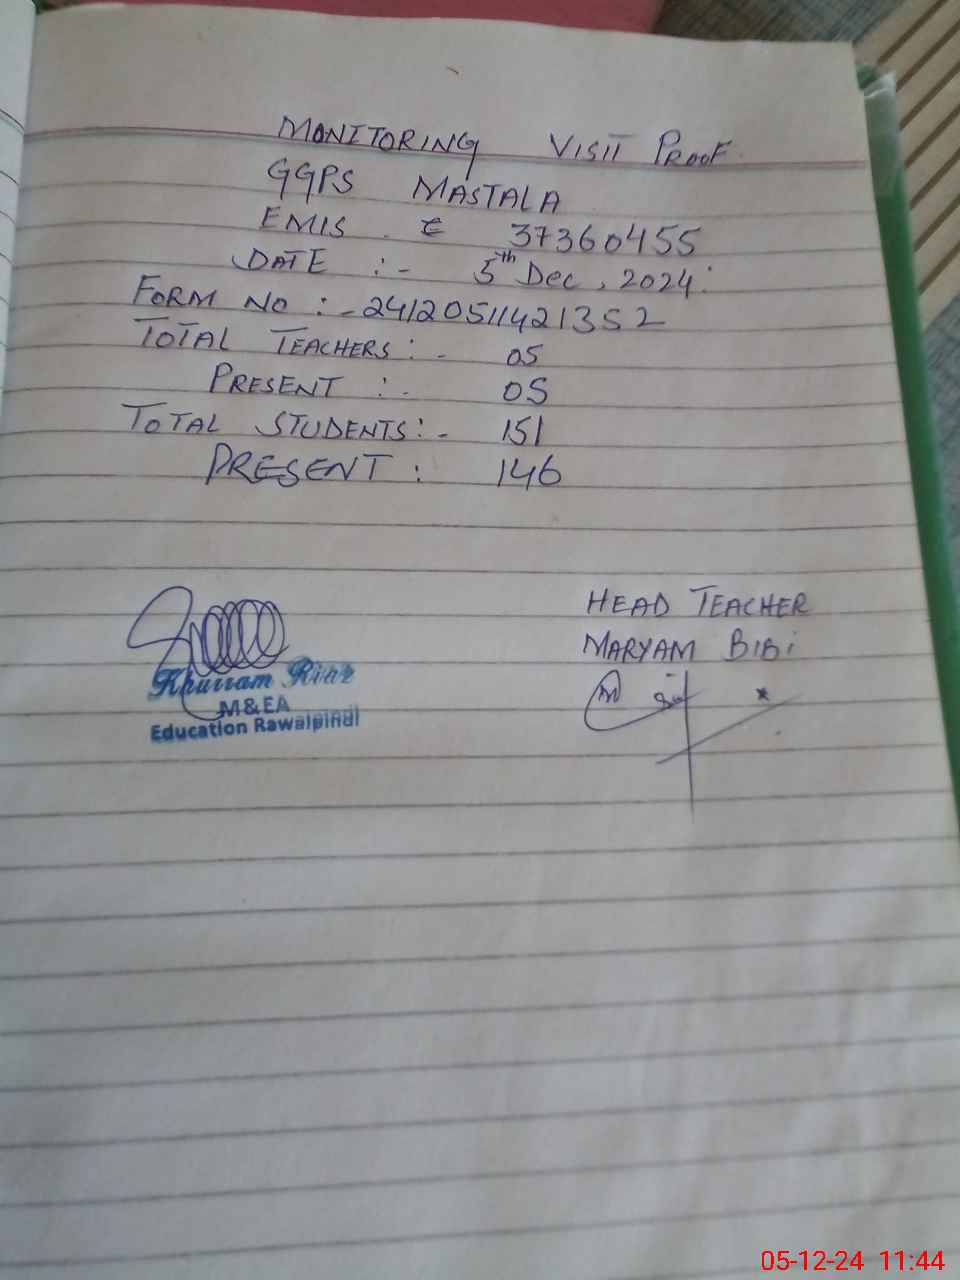 MONITORING VISIT PROOF
GGPS MASTALA
EMIS 37360455
DATE :- 5th Dec, 2024:
FORM NO :- 24120511421352
TOTAL TEACHERS :- 05
PRESENT :- 05
TOTAL STUDENTS :- 151
PRESENT : 146
HEAD TEACHER
MARYAM BIBI
Khurram Riaz
M&EA
Education Rawalpindi
05-12-24 11:44